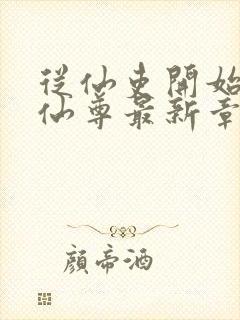 從仙吏開始
仙尊最新章
顏帝酒